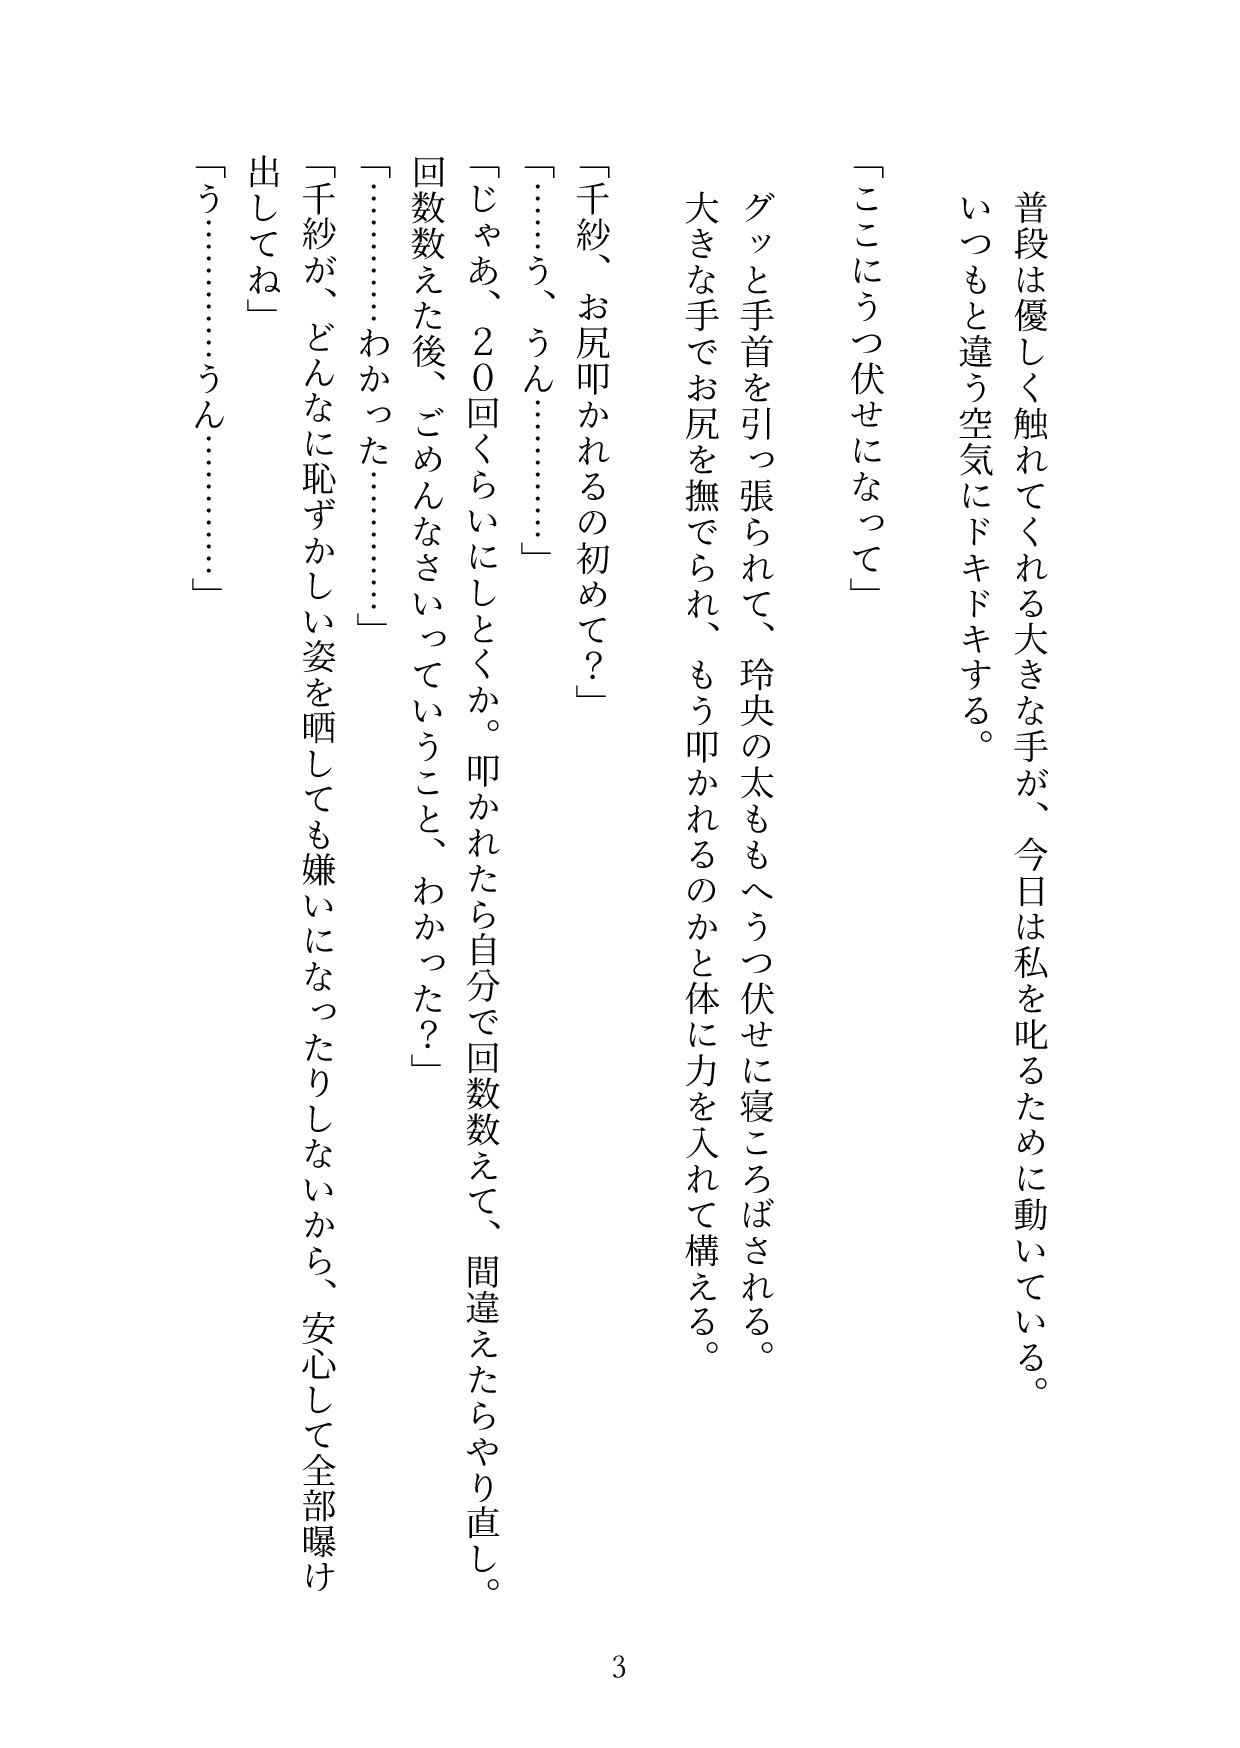 普段は優しく触れてくれる大きな手が、今日は私を叱るために動いている。
いつもと違う空気にドキドキする。
「ここにうつ伏せになって」
グッと手首を引っ張られて、玲央の太ももへうつ伏せに寝ころばされる。
大きな手でお尻を撫でられ、もう叩かれるのかと体に力を入れて構える。
「千紗、お尻叩かれるの初めて？」
「……う、うん…………」
「じゃあ、２０回くらいにしとくか。叩かれたら自分で回数数えて、間違えたらやり直し。
回数数えた後、ごめんなさいっていうこと、わかった？」
「…………わかった…………」
「千紗が、どんなに恥ずかしい姿を晒しても嫌いになったりしないから、安心して全部曝け
出してね」
「う…………うん…………」
3